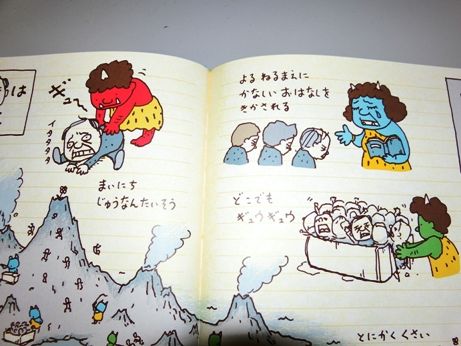 は
ギュー
イタタタタ
まいにち
じゅうなんたいそう
よる ねるまえに
かなしい おはなしを
きかされる
どこでも
ギュウギュウ
とにかく くさい